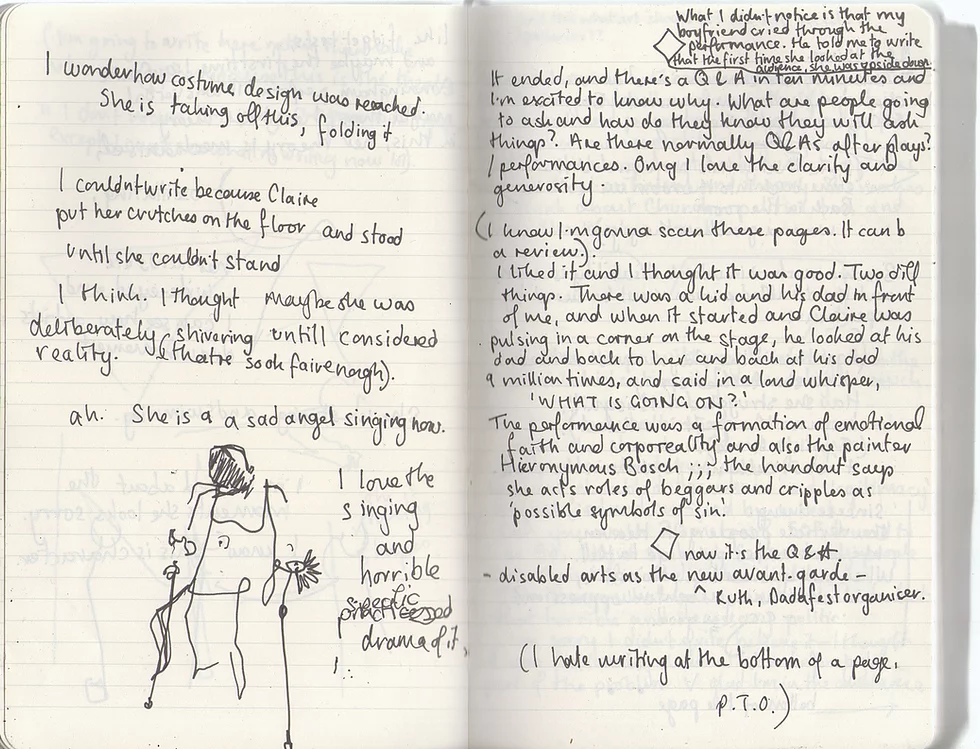 I wonder how costume design was reached.
She is taking off this, folding it
I couldn't write because Claire
put her crutches on the floor and stood
until she couldn't stand
I think. I thought maybe she was
deliberately shivering untill considered
reality. (theatre so oh fair enough).
ah. She is a a sad angel singing now.
I love the
singing
and
horrible
specific
drama of it,
What I didn't notice is that my
boyfriend cried through the
performance. He told me to write
that the first time she looked at the
audience, she was upside down.
It ended, and there's a Q & A in ten minutes and
I'm excited to know why. What are people going
to ask and how do they know they will ask
things? Are there normally Q&As after plays?
/performances. Omg I love the clarity and
generosity.
(I know I'm gonna scan these pages. It can b
a review.).
I liked it and I thought it was good. Two diff
things. There was a kid and his dad in front
of me, and when it started and Claire was
pulsing in a corner on the stage, he looked at his
dad and back to her and back at his dad
a million times, and said in a loud whisper,
'WHAT IS GOING ON?'
The performance was a formation of emotional
faith and corporeality and also the painter
Hieronymous Bosch ;;; the handout says
she acts roles of beggars and cripples as
'possible symbols of sin'.
now it's the Q&A.
- disabled arts as the new avant-garde -
^ Ruth, Dadafest organiser.
(I hate writing at the bottom of a page.
P.T.O.)